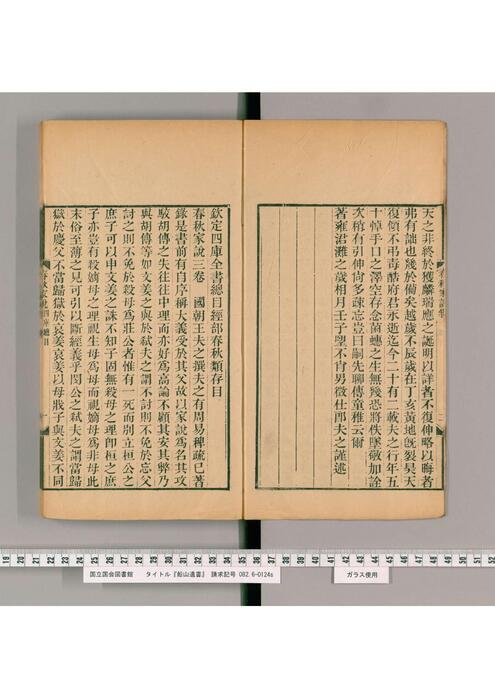 天之非終於獲麟瑞應之誕明以詳者不復伸略以晦者
弗有詘也幾於備矣越歲不辰歲在丁亥黃地既裂昊天
復傾不弔毒酷府君永逝迄今二十有二載夫之行年五
十悼手口之澤空存念菌蟪之生無幾恐將佚墜敬加詮
次稍有引伸尙多疎忘豈曰嗣先聊傳童稚云爾
著雍涒灘之歲相月壬子望不肖男徵仕郎夫之謹述
欽定四庫全書總目經部春秋類存目
春秋家說三卷 國朝王夫之撰夫之有周易稗疏已著
錄是書前有自序稱大義受於其父故以家說爲名其攻
駮胡傳之失往往中理而亦好爲高論不顧其安其弊乃
與胡傳等如文姜之與於弑夫之謂不討則不免於忘父
討之則不免於殺母爲莊公者惟有一死而別立桓公之
庶子可以申文姜之誅不知子固無殺母之理卽桓之庶
子亦豈有殺嫡母之理視生母爲母而視嫡母爲非母此
末俗至薄之見可引以斷經義乎閔公之弑夫之謂當歸
獄於慶父不當歸獄於哀姜哀姜以母戕子與文姜不同
国立国会図書館 タイトル『船山遺書』 請求記号 082.6-0124s
ガラス使用